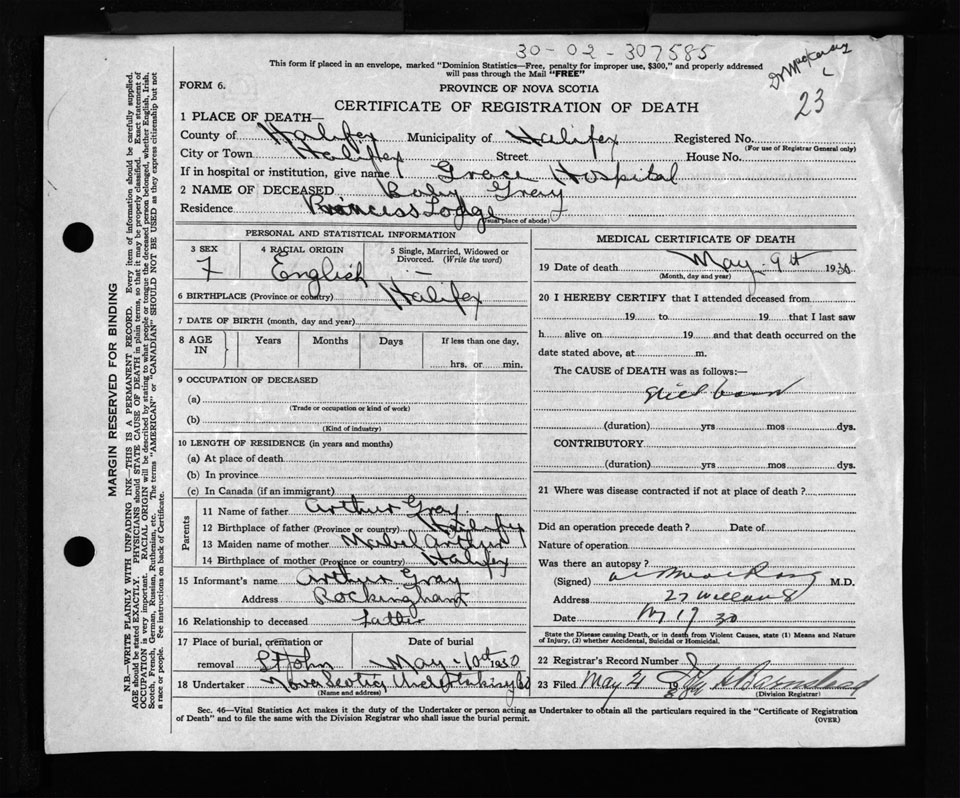 30-02-307585
This form if placed in an envelope, marked "Dominion Statistics—Free, penalty for improper use, $300," and properly addressed
will pass through the Mail "FREE"
23
FORM 6.
PROVINCE OF NOVA SCOTIA
CERTIFICATE OF REGISTRATION OF DEATH
1 PLACE OF DEATH—
County of Halifax Municipality of Halifax Registered No.
(For use of Registrar General only)
City or Town Halifax Street House No.
If in hospital or institution, give name Grace Hospital
2 NAME OF DECEASED Baby Gray
Residence Princess Lodge
(usual place of abode)
PERSONAL AND STATISTICAL INFORMATION
3 SEX 4 RACIAL ORIGIN 5 Single, Married, Widowed or
Divorced. (Write the word)
F English —
6 BIRTHPLACE (Province or country) Halifax
7 DATE OF BIRTH (month, day and year)
8 AGE IN Years Months Days If less than one day,
hrs. or min.
9 OCCUPATION OF DECEASED
(a)
(Trade or occupation or kind of work)
(b)
(Kind of industry)
10 LENGTH OF RESIDENCE (in years and months)
(a) At place of death
(b) In province
(c) In Canada (if an immigrant)
Parents
11 Name of father Arthur Gray
12 Birthplace of father (Province or country) Halifax
13 Maiden name of mother Mabel Arthur
14 Birthplace of mother (Province or country) Halifax
15 Informant's name Arthur Gray
Address Rockingham
16 Relationship to deceased Father
17 Place of burial, cremation or Date of burial
removal St John May 10th 1930
18 Undertaker Nova Scotia Undertaking Co
(Name and address)
MEDICAL CERTIFICATE OF DEATH
19 Date of death May 9th 1930
(Month, day and year)
20 I HEREBY CERTIFY that I attended deceased from
19 to 19 that I last saw
h alive on 19 and that death occurred on the
date stated above, at m.
The CAUSE of DEATH was as follows:—
Still born
(duration) yrs mos dys.
CONTRIBUTORY
(duration) yrs mos dys.
21 Where was disease contracted if not at place of death?
Did an operation precede death? Date of
Nature of operation
Was there an autopsy?
(Signed) M.D.
Address 27
Date M 19 30
State the Disease causing Death, or in death from Violent Causes, state (1) Means and Nature
of Injury, (2) whether Accidental, Suicidal or Homicidal.
22 Registrar's Record Number
23 Filed May
(Division Registrar)
Sec. 46—Vital Statistics Act makes it the duty of the Undertaker or person acting as Undertaker to obtain all the particulars required in the "Certificate of Registration
of Death" and to file the same with the Division Registrar who shall issue the burial permit.
(OVER)
MARGIN RESERVED FOR BINDING
N.B.—WRITE PLAINLY WITH UNFADING INK—THIS IS A PERMANENT RECORD. Every item of information should be carefully supplied.
AGE should be stated EXACTLY. PHYSICIANS should STATE CAUSE OF DEATH in plain terms, so that it may be properly classified. Exact statement of
OCCUPATION is very important. RACIAL ORIGIN will be described by stating to what people or tongue the deceased person belonged, whether English, Irish,
Scotch, French, German, Russian, Ruthenian, etc. The terms "AMERICAN" or "CANADIAN" SHOULD NOT BE USED as they express citizenship but not
a race or people. See instructions on back of Certificate.